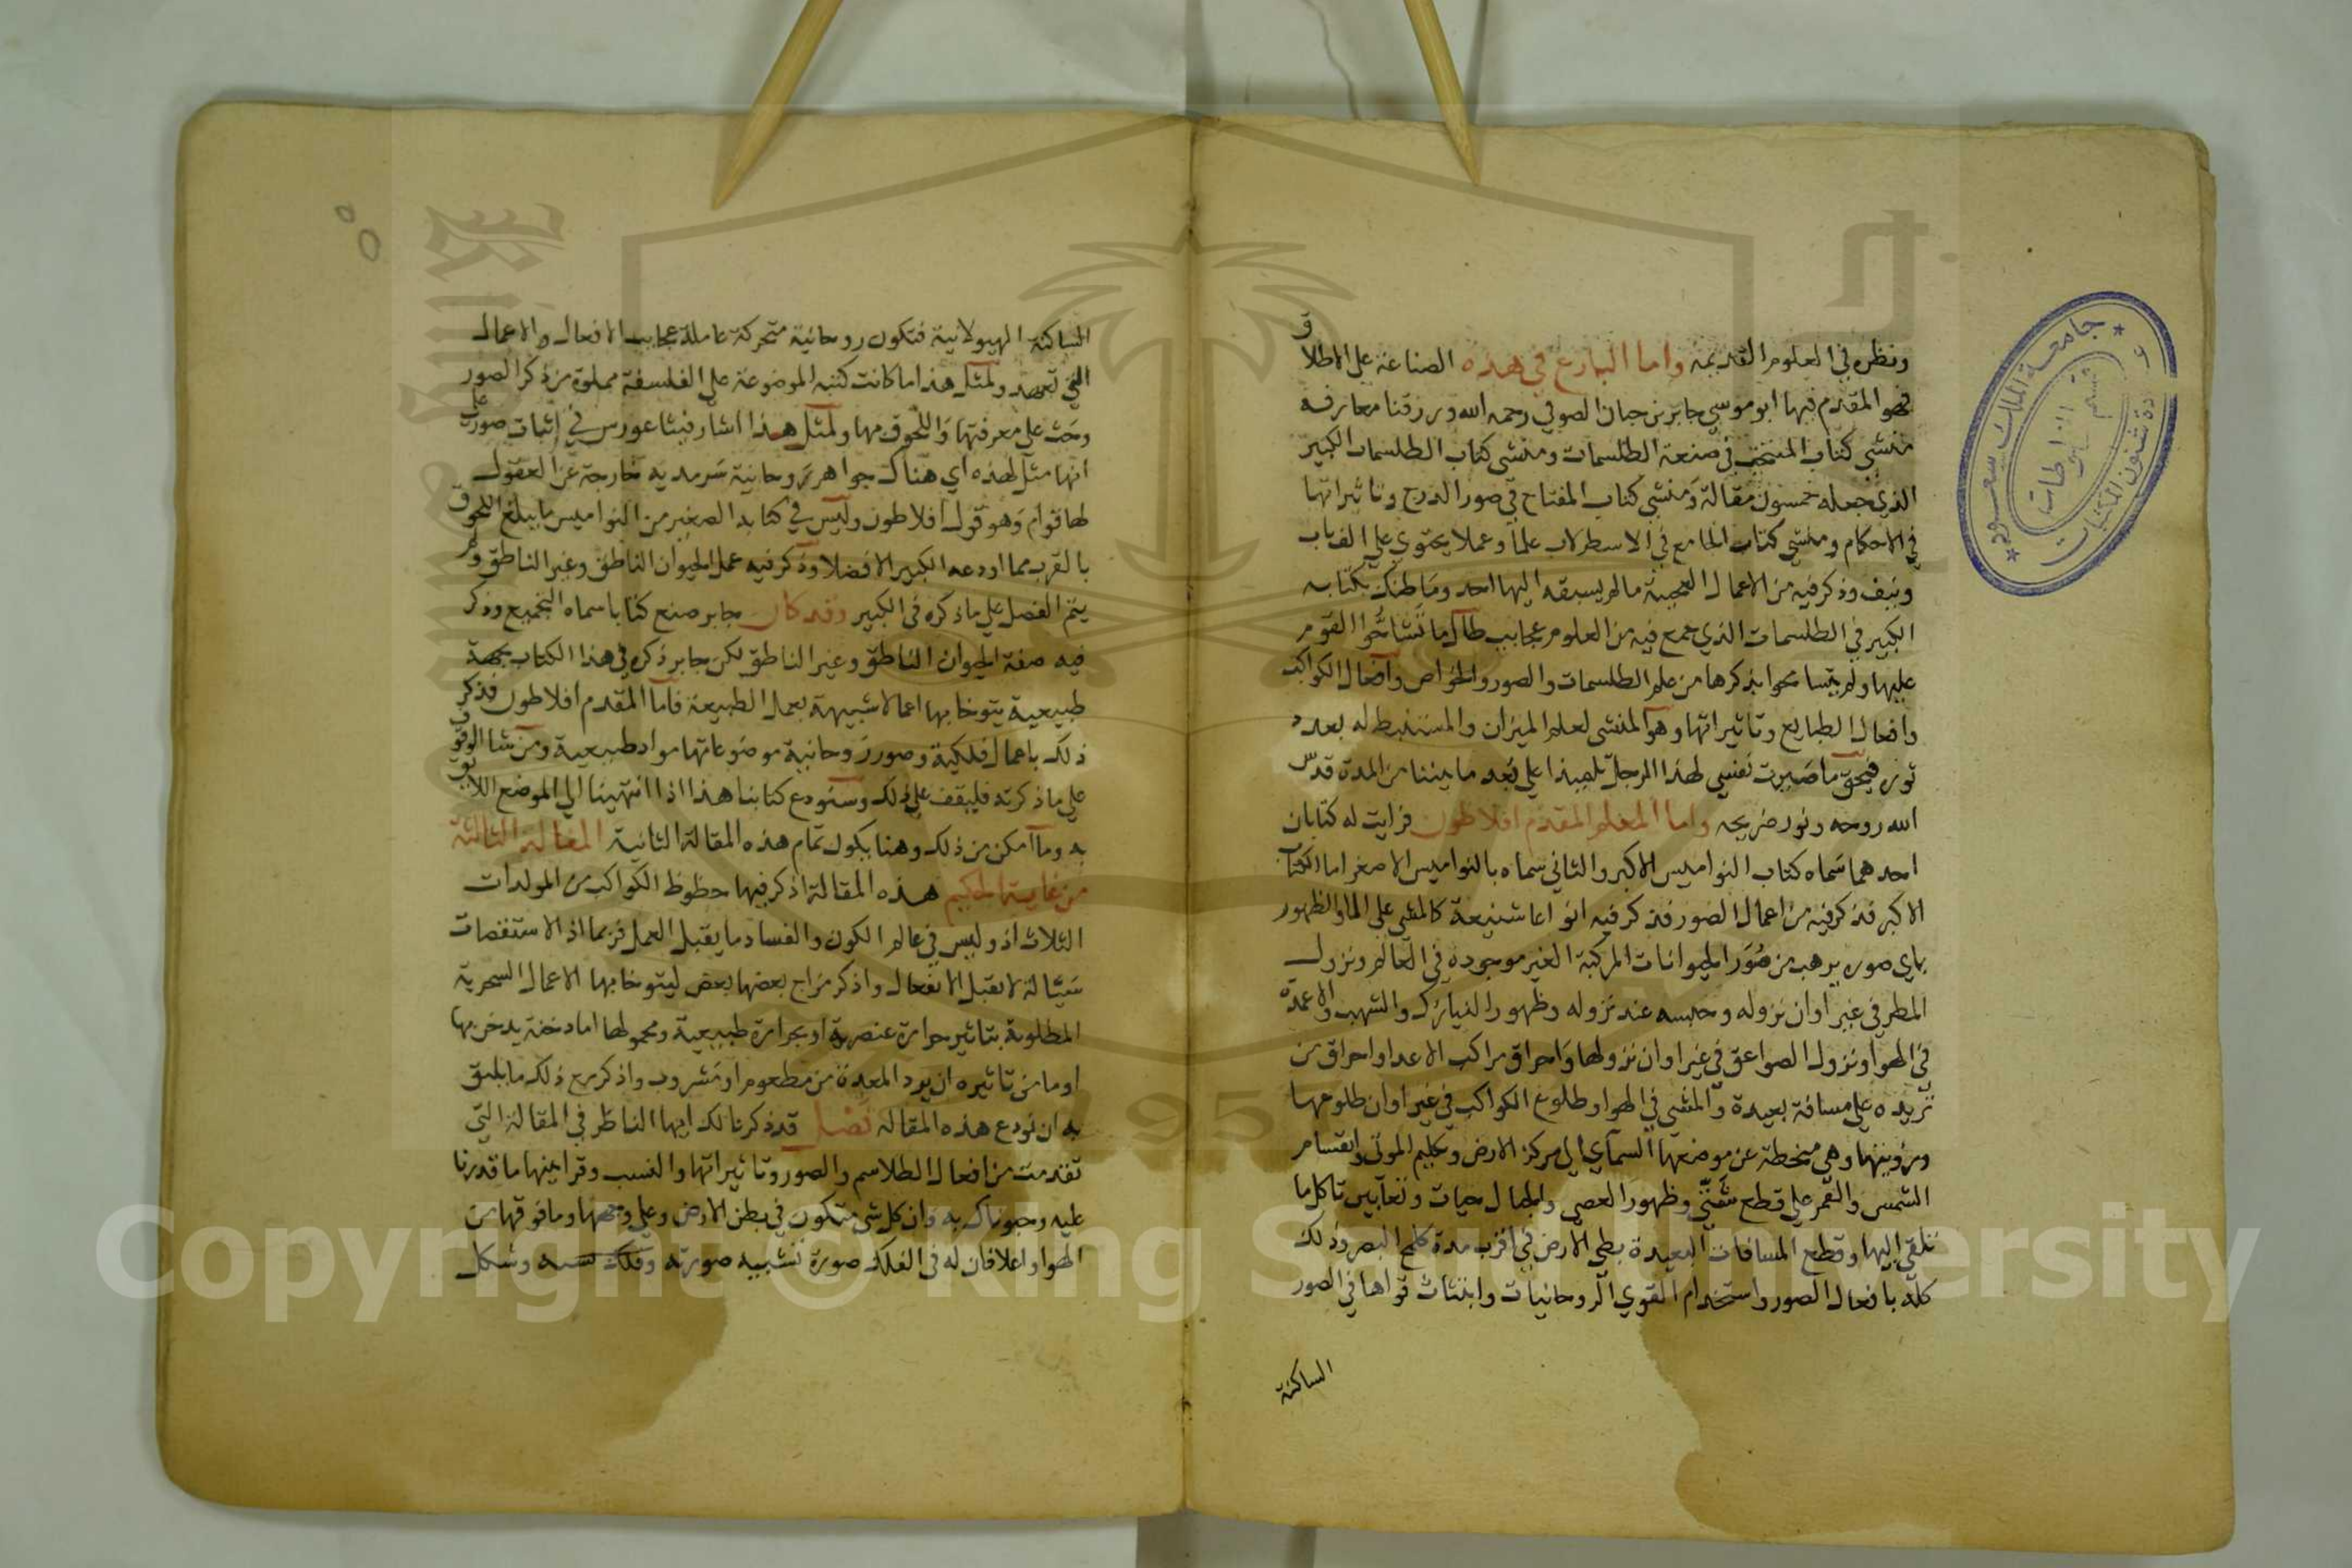 ونظره في العلوم القديمة واما البارع في هذه الصناعة علي الاطلاق
فهو المقدم فيها ابو موسي جابر بن حيان الصوفي رحمه الله ورزقنا معارفه
منشي كتاب المنتخب في صنعة الطلسمات ومنشي كتاب الطلسمات الكبير
الذي جعله خمسون مقالة ومنشي كتاب المفتاح في صور الدرج وتاثيراتها
في الاحكام ومنشي كتاب الجامع في الاسطرلاب علما وعملا يحتوي علي الف باب
ونيف وذكر فيه من الاعمال العجيبة مالم يسبقه اليها احد وما ظنك بكتابه
الكبير في الطلسمات الذي جمع فيه من العلوم عجايب طال ما تشاحوا القوم
عليها ولم يتسامحوا بذكرها من علم الطلسمات والصور والخواص وافعال الكواكب
وافعال الطبايع وتاثيراتها وهو المنشي لعلم الميزان والمستنبط له بعد
فبحق ما صيرت نفسي لهذا الرجل تلميذا علي بعد ما بيننا من المدة قدس
الله روحه ونور ضريحه واما المعلم المقدم افلاطون فرايت له كتابان
احدهما سماه كتاب النواميس الاكبر والثاني سماه بالنواميس الاصغر اما الكتاب
الاكبر فذكر فيه من اعمال الصور فذكر فيه انواعا شنيعة كالمشي علي الما والظهور
باي صوره يرهب من صور الحيوانات المركبة الغير موجودة في العالم ونزول
المطر في غير اوان نزوله وحبسه عند نزوله وظهور النيازك والشهب والاعمدة
في الهوا ونزول الصواعق في غير اوان نزولها واحراق مراكب الاعدا واحراق من
تريده علي مسافة بعيدة والمشي في الهوا وطلوع الكواكب في غير اوان طلوعها
ورؤيتها وهي منحطة عن موضعها السمآي الي مركز الارض وتكليم الموتي وانقسام
الشمس والقمر علي قطع شتي وظهور العصي والحبال حيات وثعابين تاكل ما
تلقي اليها وقطع المسافات البعيدة بطي الارض في اقرب مدة كلمح البصر وذلك
كله بافعال الصور واستخدام القوي الروحانيات وانبثاث قواها في الصور
الساكنة
الساكنة الهيولانية فتكون روحانية متحركة عاملة عجايب الافعال والاعمال
التي تعهد ولمثل هذا ما كانت كتبه الموضوعة علي الفلسفة مملوة من ذكر الصور
وحث علي معرفتها واللحوق بها ولمثل هذا اشار فيثاغورس في اثبات صور علي
انها مثل لهذه اي هناك جواهر روحانية سرمديه خارجة عن العقول
لها قوام وهو قول افلاطون وليس في كتابه الصغير من النواميس ما يبلغ اللحوق
بالقرب مما اودعه الكبير الافضلا وذكر فيه عمل الحيوان الناطق وغير الناطق ولم
يتم الفصل علي ما ذكره في الكبير وقد كان جابر صنع كتابا سماه التجميع وذكر
فيه صفة الحيوان الناطق وغير الناطق لكن جابر ذكره في هذا الكتاب بجهة
طبيعية يتوخا بها اعمالا شبيهة بعمل الطبيعة فاما المقدم افلاطون فذكر
ذلك باعمال فلكية وصور روحانية موضوعاتها مواد طبيعية ومن شا الوقوف
علي ما ذكرته فليقف علي ذلك وسنودع كتابنا هذا اذا انتهينا الي الموضع اللايق
به وما امكن من ذلك وهنا يكون تمام هذه المقالة الثانية المقالة الثالثة
من غاية الحكيم هذه المقالة اذكر فيها حظوظ الكواكب من المولدات
الثلاث اذ وليس في عالم الكون والفساد ما يقبل العمل غيرهما اذ الاستقصات
سيالة لا تقبل الانفعال واذكر مزاج بعضها ببعض ليتوخا بها الاعمال السحرية
المطلوبة بتاثير حرارة عنصرية او بحرارة طبيعية ومحمولها اما دخنة يدخن بها
او ما من تاثيره ان يرد المعدة من مطعوم او مشروب واذكر مع ذلك ما يليق
به ان نودع هذه المقاله فصل قد ذكرنا لك ايها الناظر في المقالة التي
تقدمت من افعال الطلاسم والصور وتاثيراتها والنسب وقرانيها ما قدرنا
عليه وحبوناك به وان كل شي متكون في بطن الارض وعلي وجهها وما فوقها من
الهوا واعلا فان له في الفلك صورة تشبيه صورته وفلك نسبه وشكل
جامعة الملك سعود
Copyright © King Saud University
1957